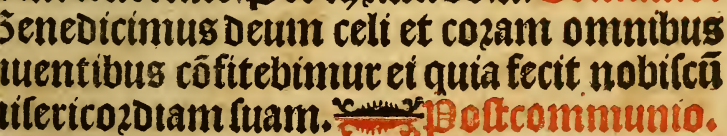 Benedicimus deum celi et coꝛam omnibus
uentibus cõfitebimur ei quia fecit nobiſcũ
iſericoꝛdiam ſuam. Poſtcommunio.